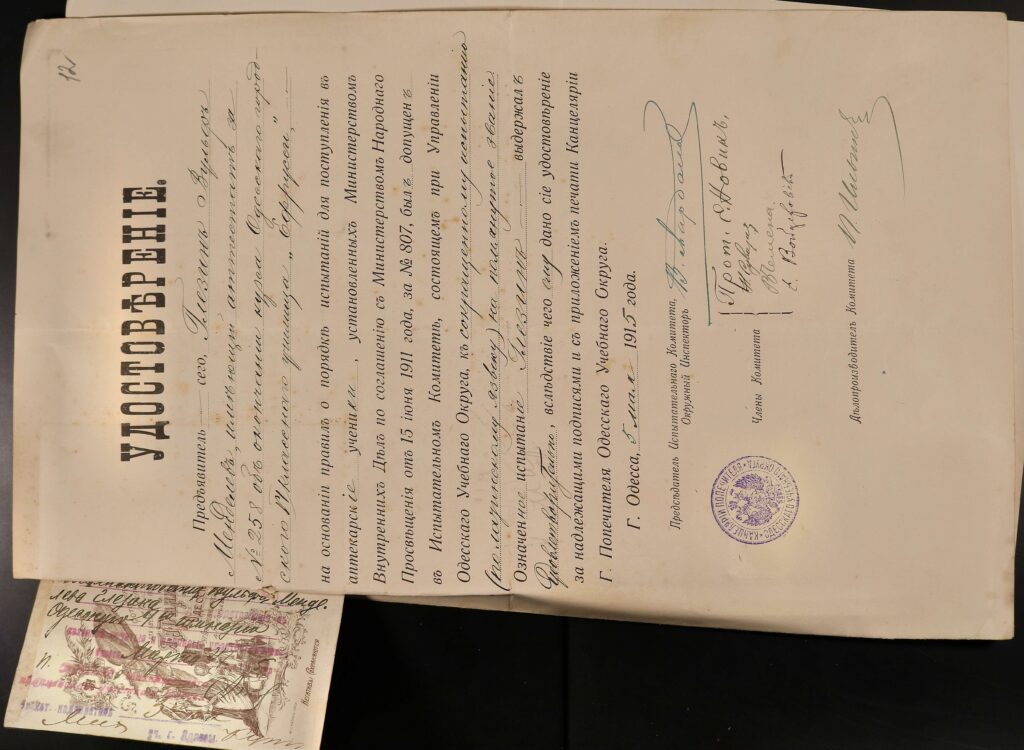 121
УДОСТОВѢРЕНІЕ.
Предъявитель сего, Глезинъ Вульфъ
Менделевъ, имѣющій аттестатъ за
№ 258 объ окончаніи курса Одесскаго город-
ского училища "Ефруси",
на основаніи правилъ о порядкѣ испытаній для поступленія въ
аптекарскіе ученики, установленныхъ Министерствомъ
Внутреннихъ Дѣлъ по соглашенію съ Министерствомъ Народнаго
Просвѣщенія отъ 15 іюня 1911 года, за № 807, былъ допущенъ
въ Испытательномъ Комитетѣ, состоящемъ при Управленіи
Одесскаго Учебнаго Округа, къ сокращенному испытанію
(по латинскому языку) на помянутое званіе
Означенное испытаніе Глезинъ выдержалъ
удовлетворительно, вслѣдствіе чего ему дано сіе удостовѣреніе
за надлежащими подписями и съ приложеніемъ печати Канцеляріи
Г. Попечителя Одесскаго Учебнаго Округа.
Г. Одесса, 5 мая 1915 года.
Предсѣдатель Испытательнаго Комитета,
Окружный Инспекторъ
Члены Комитета
Прот. Е. Новинъ,
Войцеховичъ
Дѣлопроизводитель Комитета
КАНЦЕЛЯРІЯ ПОПЕЧИТЕЛЯ ОДЕССКАГО УЧЕБНАГО ОКРУГА
Менде-
лева
Одесскую
марта
г. Одессы